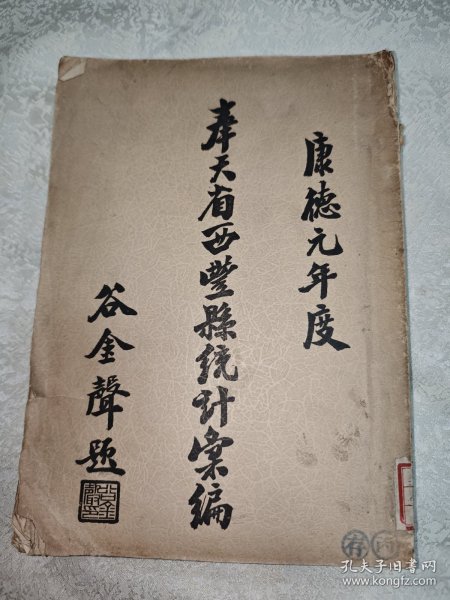 康德元年度
奉天省西豐縣統計彙編
谷金聲題
孔夫子旧书网
www.kongfz.com